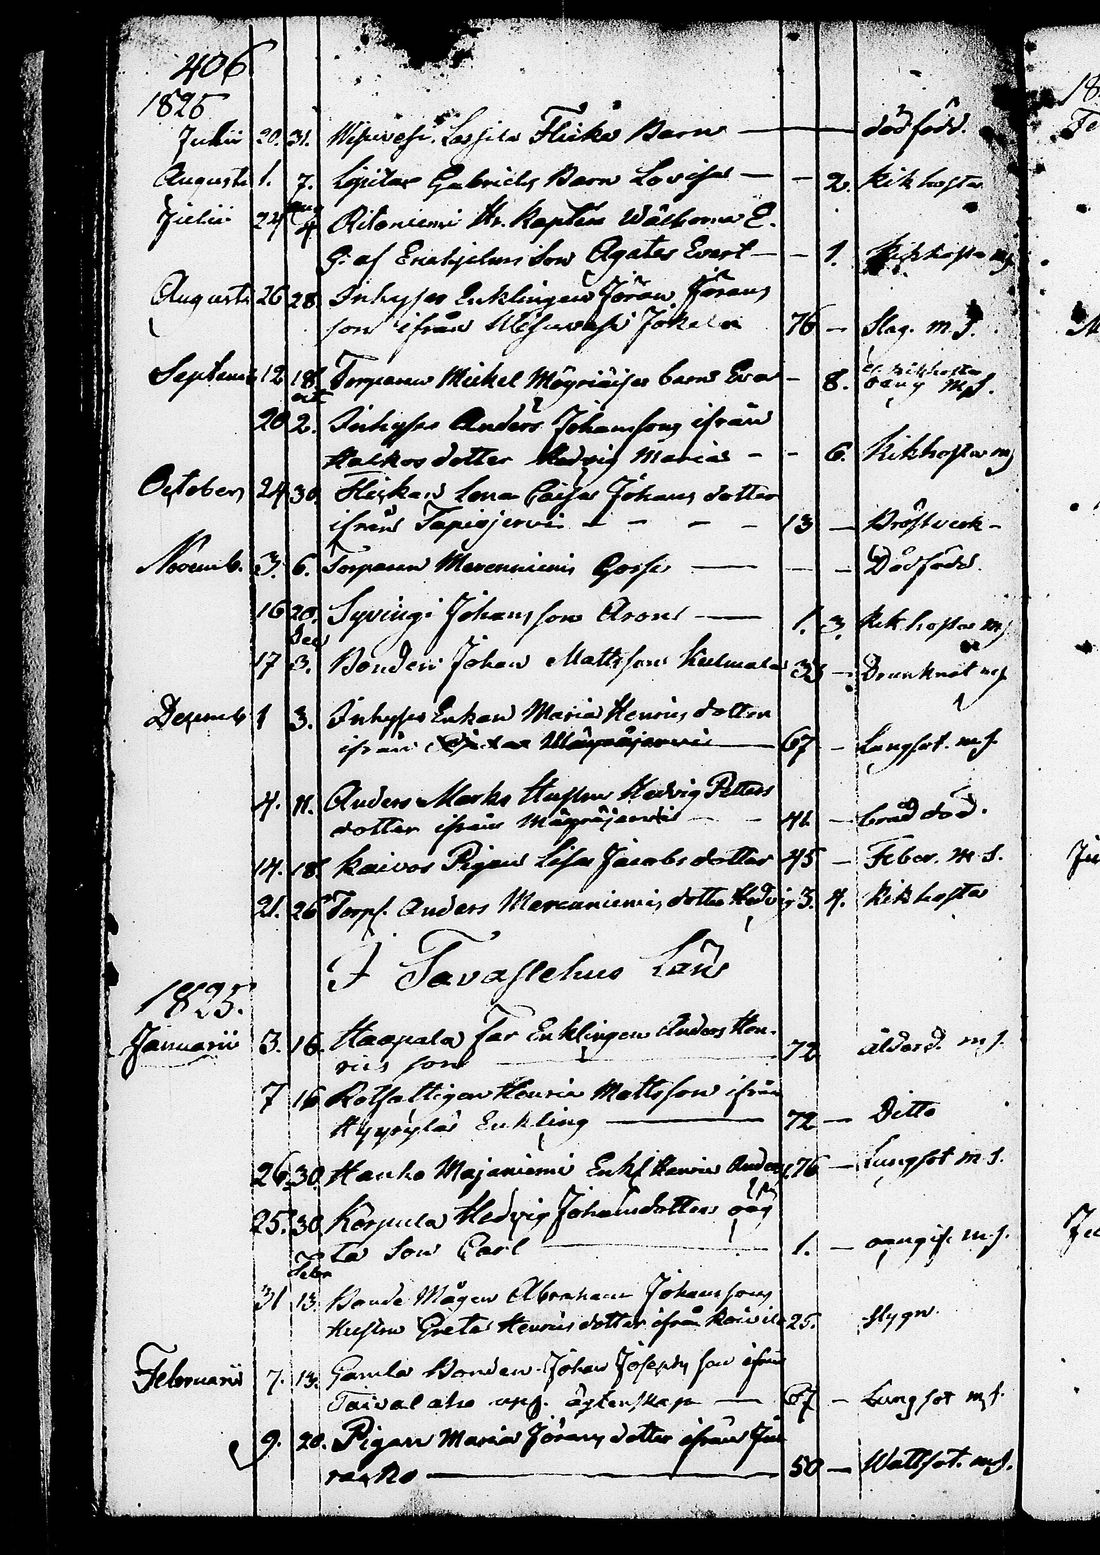 406
1825
Julii 20. 31. Flickes Barn — dödfödd.
Augusti 1. 7. Gabriels Barn Lovisa — - 2. Kikhosta
Julii 24 Aug 4 Ritoniemi Hr. Kapten E.
G. af Enehjelms Son Agates Evert — - 1. Kikhosta mf
Augusti 26 28 Inhyses Enklingen Jöran Jörans
son ifrån Jokela 76 — Slag. m.f.
Septemb 12 18 Torparen Mickel barn Eva - 8. Kikhosta
oäng m.f.
28 oct 2. Inhyses Anders Johanssons ifrån
Halkos dotter Hedvig Maria - - 6. Kikhosta mf
October 24 30. Flickan Lena Caisa Johans dotter
ifrån Tapiojervi - - - - 13 — Bröstverk -
Novemb. 3. 6. Torparen Merenniemis Gosse — - — Dödfödd.
16 20. Johansson Aron — 1. 3. Kikhosta mf
17 Dec 3. Bonden Johan Mattsson 33 — Drunknat mf
Decemb 1 3. Inhyses Enkan Maria Henrics dotter
ifrån 67 — Lungsot. m.f.
4. 11. Anders Marks Hustru Hedvig Petters
dotter ifrån - - 41. — bråd död.
14. 18. Kaivos Pigan Lisa Jacobs dotter 45 — Feber. m.f.
21. 26 Torp. Anders Merenniemis dotter Hedvig 3. 4. Kikhosta
I Tavastehus Län
1825.
Januarii 3. 16. Haapala far Enklingen Anders Hen-
rics son 72 ålderd. m.f.
7 16 Rotfattigen Henric Mattsson ifrån
Hyyrylä Enkling — 72 — Ditto
26. 30. Hauho Majaniemi Enkl Henric Anders 76 — Lungsot m.f.
25. 30 Korpula Hedvig Johansdotters oäg
ta Son Carl 1. — oangif. m.f.
31 Febr 13. Bonde Mågen Abraham Johanssons
Hustru Greta Henricsdotter ifrån 25. Slygn
Februarii 7. 13. Gamla Bonden Johan Josephs son ifrån
Taivalaho äktenskap — 67 — Lungsot mf.
9. 20. Pigan Maria Jörans dotter ifrån
— 50 — Wattsot. mf.